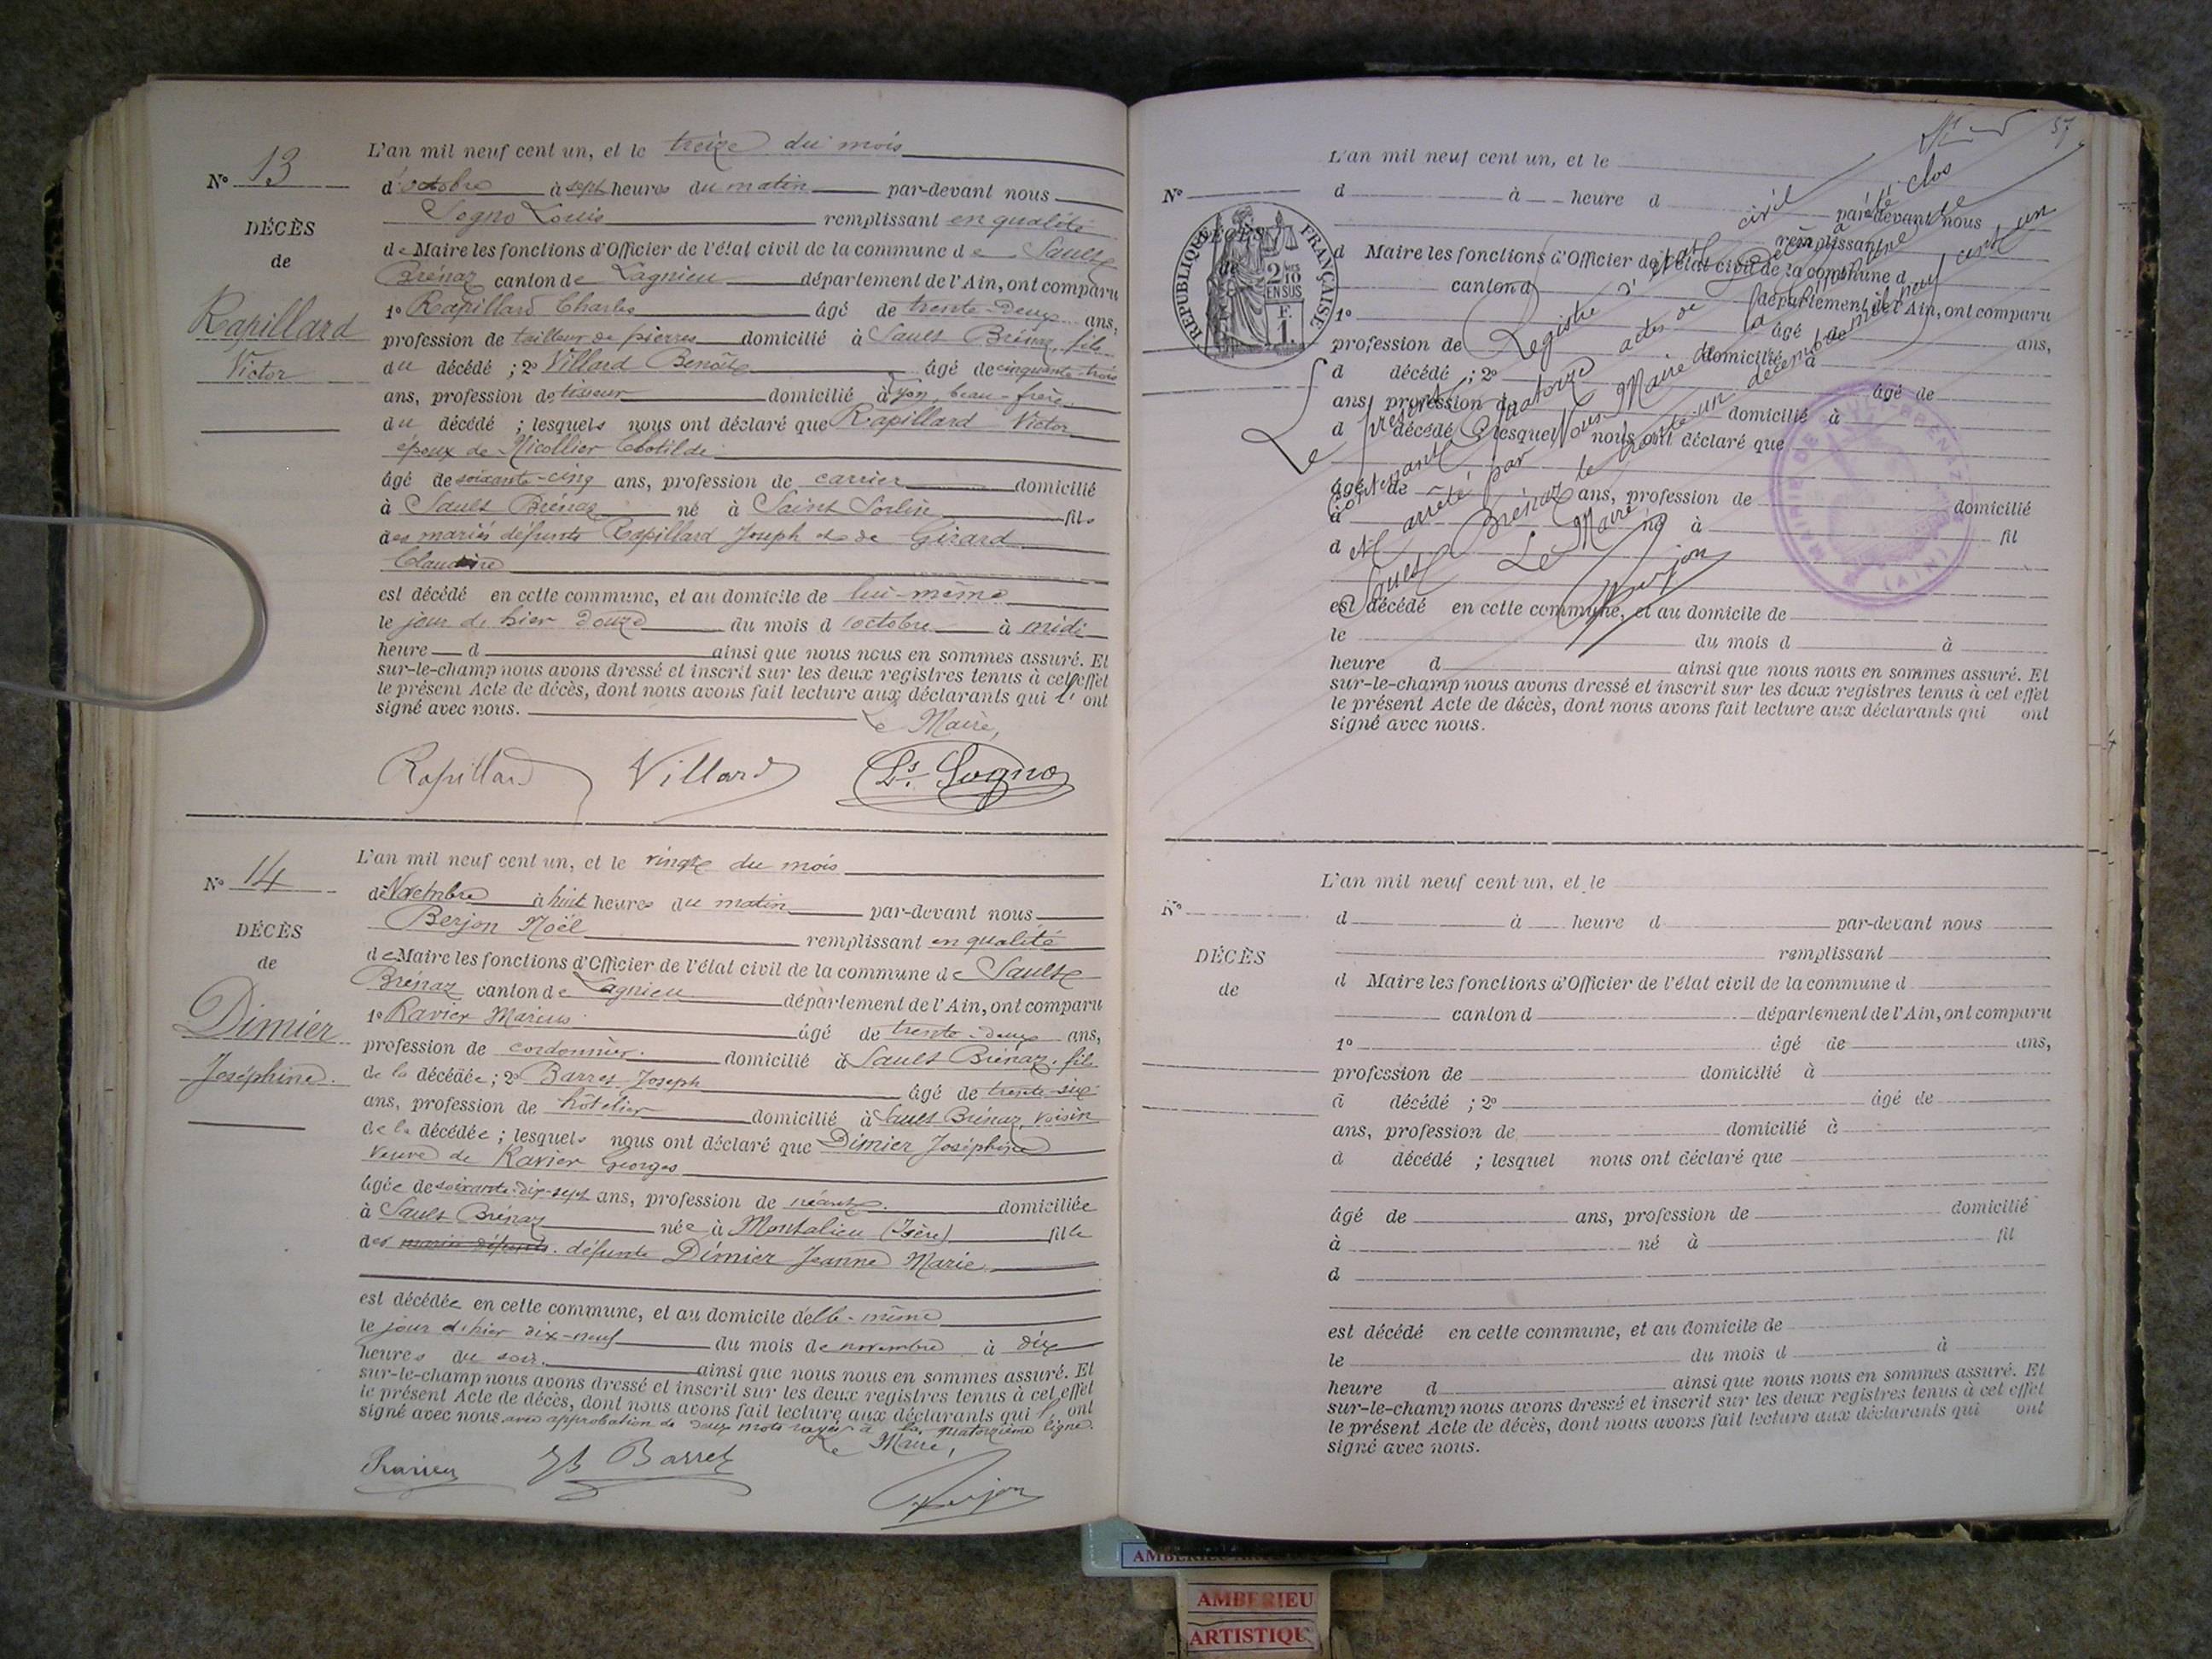 N° 13
DÉCÈS
de
Rapillard
Victor
L'an mil neuf cent un, et le treize du mois
d'octobre à sept heures du matin par-devant nous
Sogno Louis remplissant en qualité
de Maire les fonctions d'Officier de l'état civil de la commune de Sault
Brénaz canton de Lagnieu département de l'Ain, ont comparu
1° Rapillard Charles âgé de trente-deux ans,
profession de tailleur de pierres domicilié à Sault Brénaz, fils
du décédé ; 2° Villard Benoît âgé de cinquante-trois
ans, profession de tisseur domicilié à Lyon, beau-frère
du décédé ; lesquels nous ont déclaré que Rapillard Victor
époux de Nicollier Clotilde
âgé de soixante-cinq ans, profession de carrier domicilié
à Sault Brénaz né à Saint Sorlin fils
des mariés défunts Rapillard Joseph et de Girard
Claudine
est décédé en cette commune, et au domicile de lui-même
le jour de hier douze du mois d'octobre à midi
heure d ainsi que nous nous en sommes assuré. Et
sur-le-champ nous avons dressé et inscrit sur les deux registres tenus à cet effet
le présent Acte de décès, dont nous avons fait lecture aux déclarants qui l' ont
signé avec nous.
Le Maire,
Rapillard Villard Ls. Sogno
N° 14
DÉCÈS
de
Dimier
Joséphine.
L'an mil neuf cent un, et le vingt du mois
de Novembre à huit heures du matin par-devant nous
Berjon Noël remplissant en qualité
de Maire les fonctions d'Officier de l'état civil de la commune de Sault
Brénaz canton de Lagnieu département de l'Ain, ont comparu
1° Ravier Marius âgé de trente-deux ans,
profession de cordonnier. domicilié à Sault Brénaz, fils
de la décédée ; 2° Barret Joseph âgé de trente-six
ans, profession de hôtelier domicilié à Sault Brénaz, voisin
de la décédée ; lesquels nous ont déclaré que Dimier Joséphine
veuve de Ravier Georges
âgée de soixante-dix-sept ans, profession de néant. domiciliée
à Sault Brénaz née à Montalieu (Isère) fille
des mariés défunts. défunte Dimier Jeanne Marie
est décédée en cette commune, et au domicile d'elle-même
le jour d'hier dix-neuf du mois de novembre à dix
heures du soir. ainsi que nous nous en sommes assuré. Et
sur-le-champ nous avons dressé et inscrit sur les deux registres tenus à cet effet
le présent Acte de décès, dont nous avons fait lecture aux déclarants qui l' ont
signé avec nous. avec approbation de deux mots rayés à la quatorzième ligne.
Le Maire,
Ravier Barret Berjon
57
N°
DÉCÈS
de
RÉPUBLIQUE FRANÇAISE
2/10 EN SUS
F. 1.
L'an mil neuf cent un, et le
d à heure d par-devant nous
remplissant
d Maire les fonctions d'Officier de l'état civil de la commune d
canton d département de l'Ain, ont comparu
1° âgé de ans,
profession de domicilié à
d décédé ; 2° âgé de
ans, profession de domicilié à
d décédé ; lesquel nous ont déclaré que
âgé de ans, profession de domicilié
à né à fil
d
est décédé en cette commune, et au domicile de
le du mois d à
heure d ainsi que nous nous en sommes assuré. Et
sur-le-champ nous avons dressé et inscrit sur les deux registres tenus à cet effet
le présent Acte de décès, dont nous avons fait lecture aux déclarants qui ont
signé avec nous.
Le présent Registre d'état civil
contenant quatorze actes de Décès a été clos
et arrêté par Nous Maire de la commune de
Sault Brénaz le trente-un décembre mil neuf cent un
Le Maire
Berjon
MAIRIE DE SAULT-BRÉNAZ
(AIN)
N°
DÉCÈS
de
L'an mil neuf cent un, et le
d à heure d par-devant nous
remplissant
d Maire les fonctions d'Officier de l'état civil de la commune d
canton d département de l'Ain, ont comparu
1° âgé de ans,
profession de domicilié à
d décédé ; 2° âgé de
ans, profession de domicilié à
d décédé ; lesquel nous ont déclaré que
âgé de ans, profession de domicilié
à né à fil
d
est décédé en cette commune, et au domicile de
le du mois d à
heure d ainsi que nous nous en sommes assuré. Et
sur-le-champ nous avons dressé et inscrit sur les deux registres tenus à cet effet
le présent Acte de décès, dont nous avons fait lecture aux déclarants qui ont
signé avec nous.
AMBERIEU ARTISTIQUE
AMBERIEU
ARTISTIQU